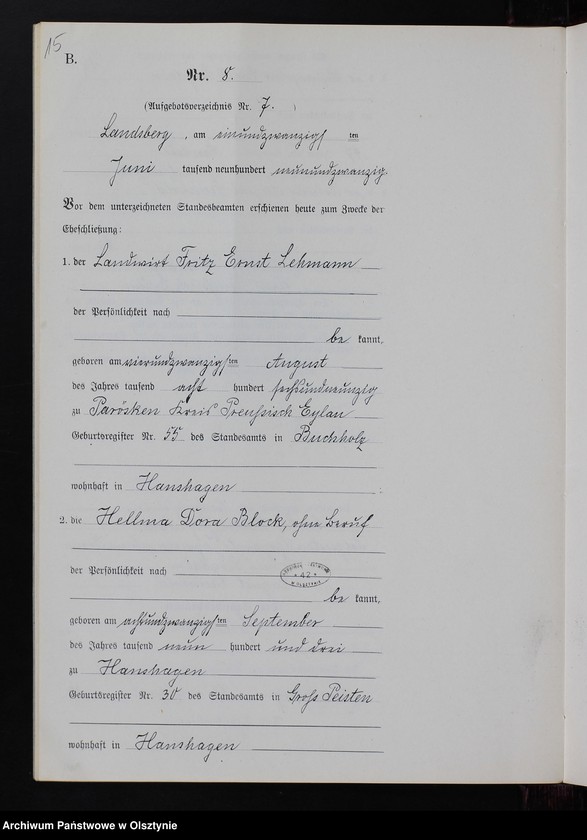 15
B.
Nr. 8.
(Aufgebotsverzeichnis Nr. 7. )
Landsberg, am einundzwanzigsten
Juni tausend neunhundert neunundzwanzig
Vor dem unterzeichneten Standesbeamten erschienen heute zum Zwecke der
Eheschließung:
1. der Landwirt Fritz Ernst Lehmann
der Persönlichkeit nach
be kannt,
geboren am vierundzwanzigsten August
des Jahres tausend acht hundert sechsundneunzig
zu Parösken Kreis Preußisch Eylau
Geburtsregister Nr. 55 des Standesamts in Buchholz
wohnhaft in Hanshagen
2. die Hellma Dora Block, ohne Beruf
der Persönlichkeit nach
42
be kannt,
geboren am achtundzwanzigsten September
des Jahres tausend neun hundert und drei
zu Hanshagen
Geburtsregister Nr. 30 des Standesamts in Groß Peisten
wohnhaft in Hanshagen
Archiwum Państwowe w Olsztynie